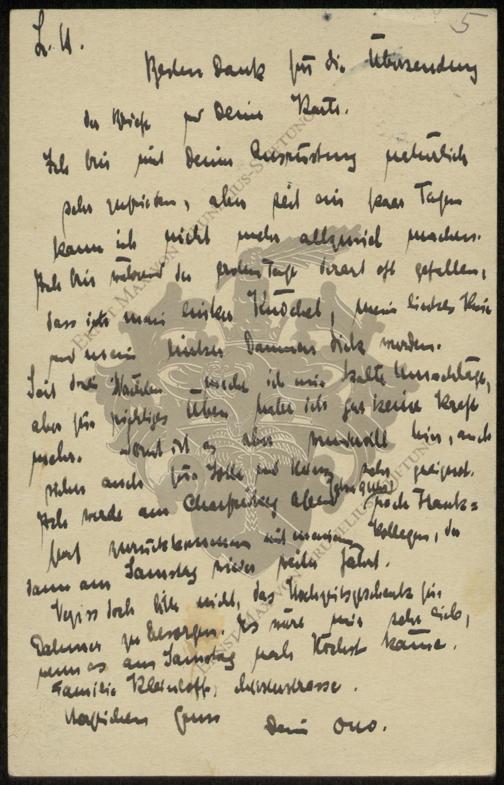 5
L. U.
Besten Dank für die Übersendung
der Briefe und Deine Karte.
Ich bin mit Deiner Ausrüstung natürlich
sehr zufrieden, aber seit ein paar Tagen
kann ich nicht mehr allzuviel machen.
Ich bin während der ersten Tage derart oft gefallen,
dass ich mein linker Knöchel, mein linkes Knie
und mein linker Daumen dick wurden.
Seit drei Nächten mache ich mir kalte Umschläge,
aber für richtiges Üben habe ich gar keine Kraft
mehr. Sonst ist es aber wundervoll hier, auch
sicher auch für Dolle und sehr geeignet.
Ich werde am Abend nach Frank-
furt zurückkommen mit meinem Kollegen, der
dann am Samstag wieder weiter fährt.
Vergiss doch bitte nicht, das Hochzeitsgeschenk für
zu besorgen. Es wäre mir sehr lieb,
wenn es am Samstag nach Höchst käme.
Familie
Herzlichen Gruss
Dein Otto.
ERNST MAX VON GRUNELIUS-STIFTUNG
ERNST MAX VON GRUNELIUS-STIFTUNG